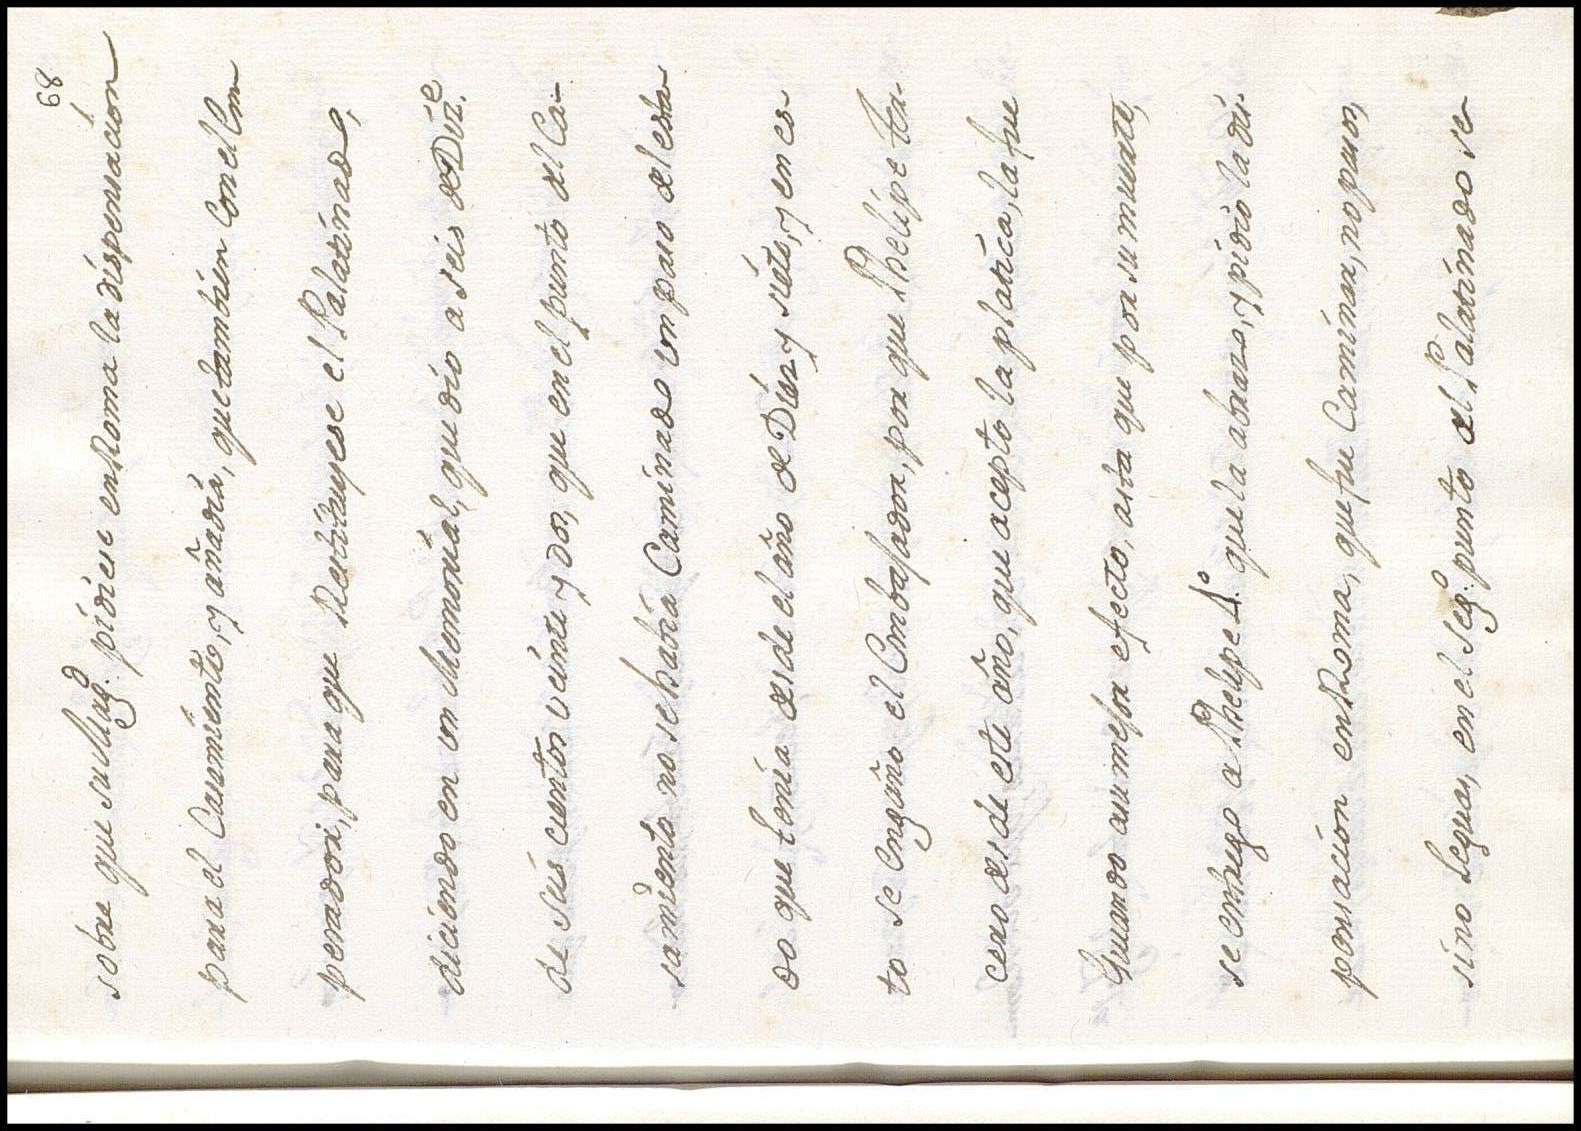 68
sobre que su Mag.d pidiese en Roma la dispensacion
para el Casamiento, y añadia, que tambien con el Em
perador, para que Restituyese el Palatinado,
diciendo en un Memorial, que dio a seis de Diz.e
de seis cientos veinte y dos, que en el punto del Ca-
samiento no se habia Caminado con paso de el esta
do que tenia desde el año de Diez y siete, y en es
to se engaño el Embaxador, por que Phelipe ter-
cero desde este año, que acepto la platica, la fue
Guiando a su mejor efecto, asta que por su muerte,
se entrego a Phelipe 4.º que la abrazo, y pidio la dis-
pensacion en Roma, que fue Caminar, no pasos,
sino Leguas, en el Seg.º punto del Palatinado se